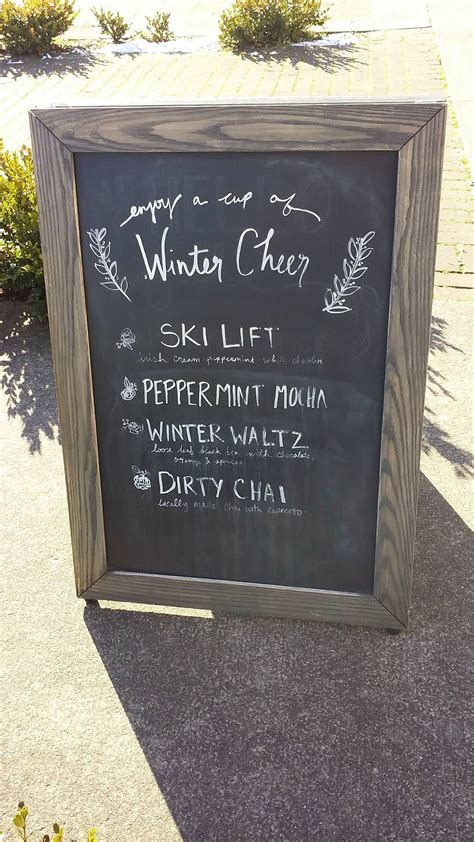 enjoy a cup of
Winter Cheer
SKI LIFT
irish cream, peppermint, white chocolate
PEPPERMINT MOCHA
WINTER WALTZ
loose leaf black tea with chocolate,
orange & spices
DIRTY CHAI
locally made chai with espresso